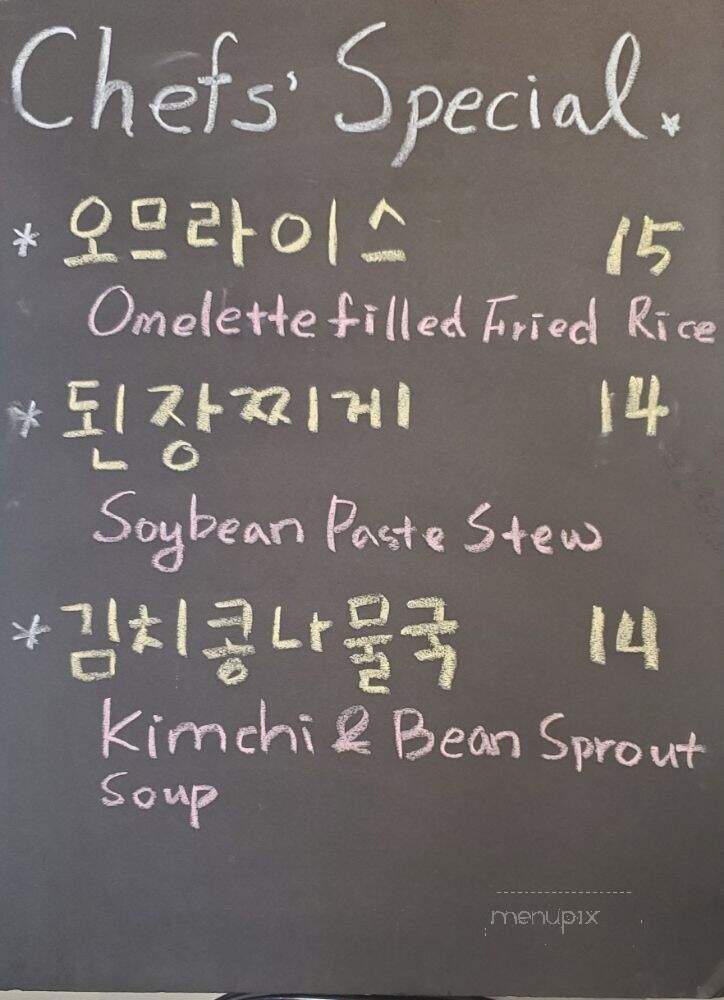 Chefs' Special.
* 오므라이스 15
Omelette filled Fried Rice
* 된장찌게 14
Soybean Paste Stew
* 김치콩나물국 14
Kimchi & Bean Sprout
Soup
menupix